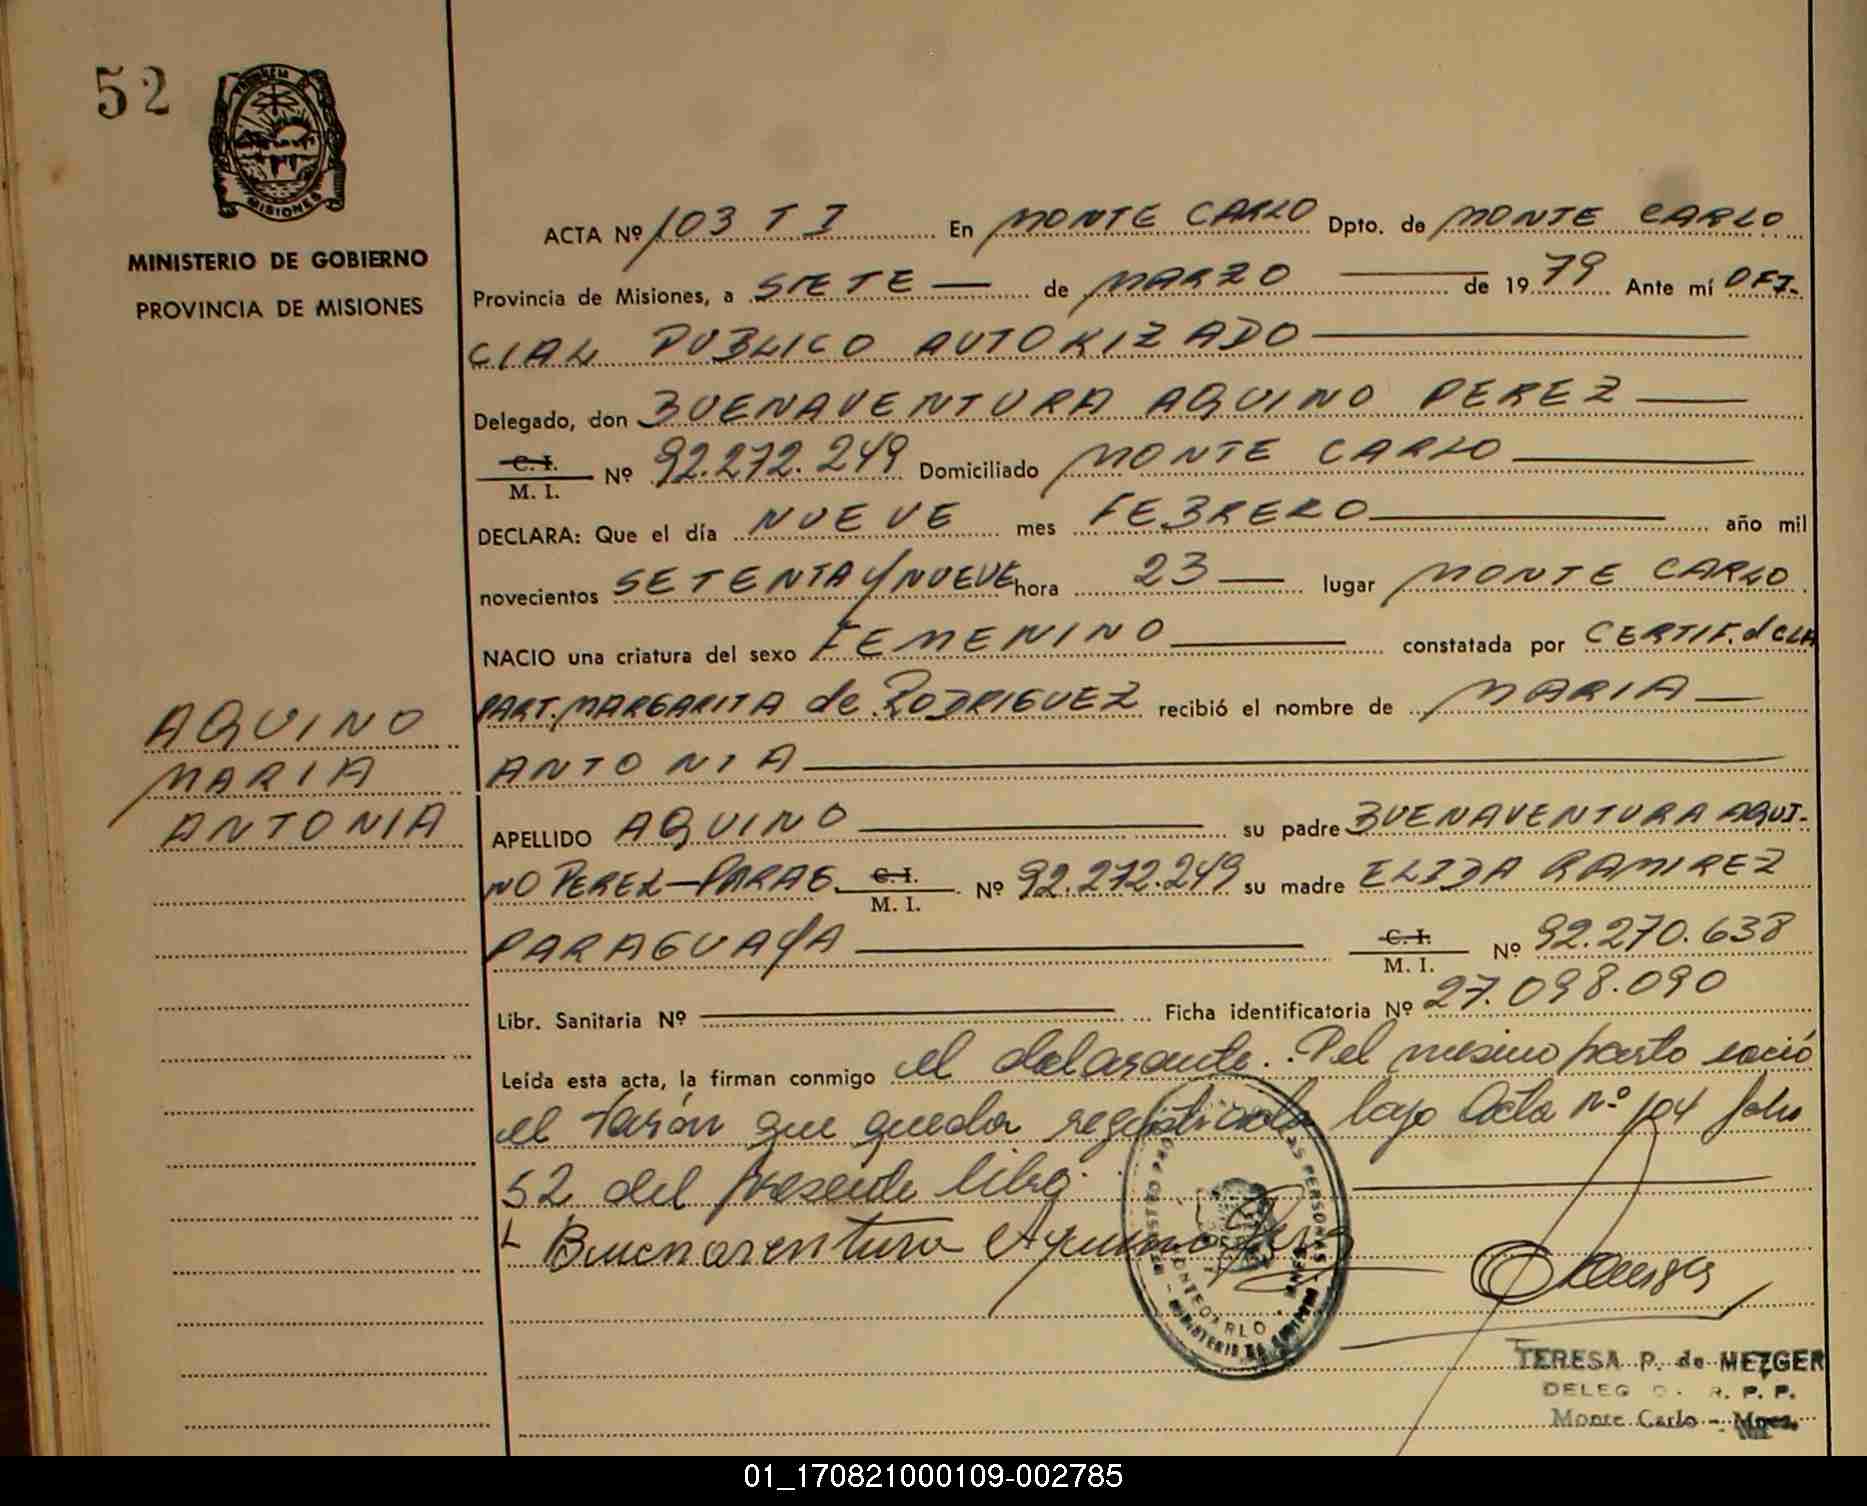 52
PROVINCIA DE
MISIONES
MINISTERIO DE GOBIERNO
PROVINCIA DE MISIONES
ACTA Nº 103 T I En MONTE CARLO Dpto. de MONTE CARLO
Provincia de Misiones, a SIETE — de MARZO — de 1979 Ante mí OFI-
CIAL PUBLICO AUTORIZADO —
Delegado, don BUENAVENTURA AQUINO PEREZ —
C. I.
M. I. Nº 92.272.249 Domiciliado MONTE CARLO —
DECLARA: Que el día NUEVE mes FEBRERO — año mil
novecientos SETENTA y NUEVE hora 23 — lugar MONTE CARLO
NACIO una criatura del sexo FEMENINO — constatada por CERTIF. d CLA
PART. MARGARITA de RODRIGUEZ recibió el nombre de MARIA —
ANTONIA —
AQUINO
MARIA
ANTONIA
APELLIDO AQUINO — su padre BUENAVENTURA AQUI-
NO PEREZ — PARAG. C. I.
M. I. Nº 92.272.249 su madre ELIDA RAMIREZ
PARAGUAYA — C. I.
M. I. Nº 92.270.638
Libr. Sanitaria Nº — Ficha identificatoria Nº 27.098.090
Leída esta acta, la firman conmigo el delarante. Del mismo parto nació
el varón que queda registrado bajo Acta nº 104 folio
52 del presente libro.
Buenaventura Aquino Perez
MONTECARLO
TERESA P. de MEZGER
DELEG R. P. P.
Monte Carlo - Mnes.
01_170821000109-002785